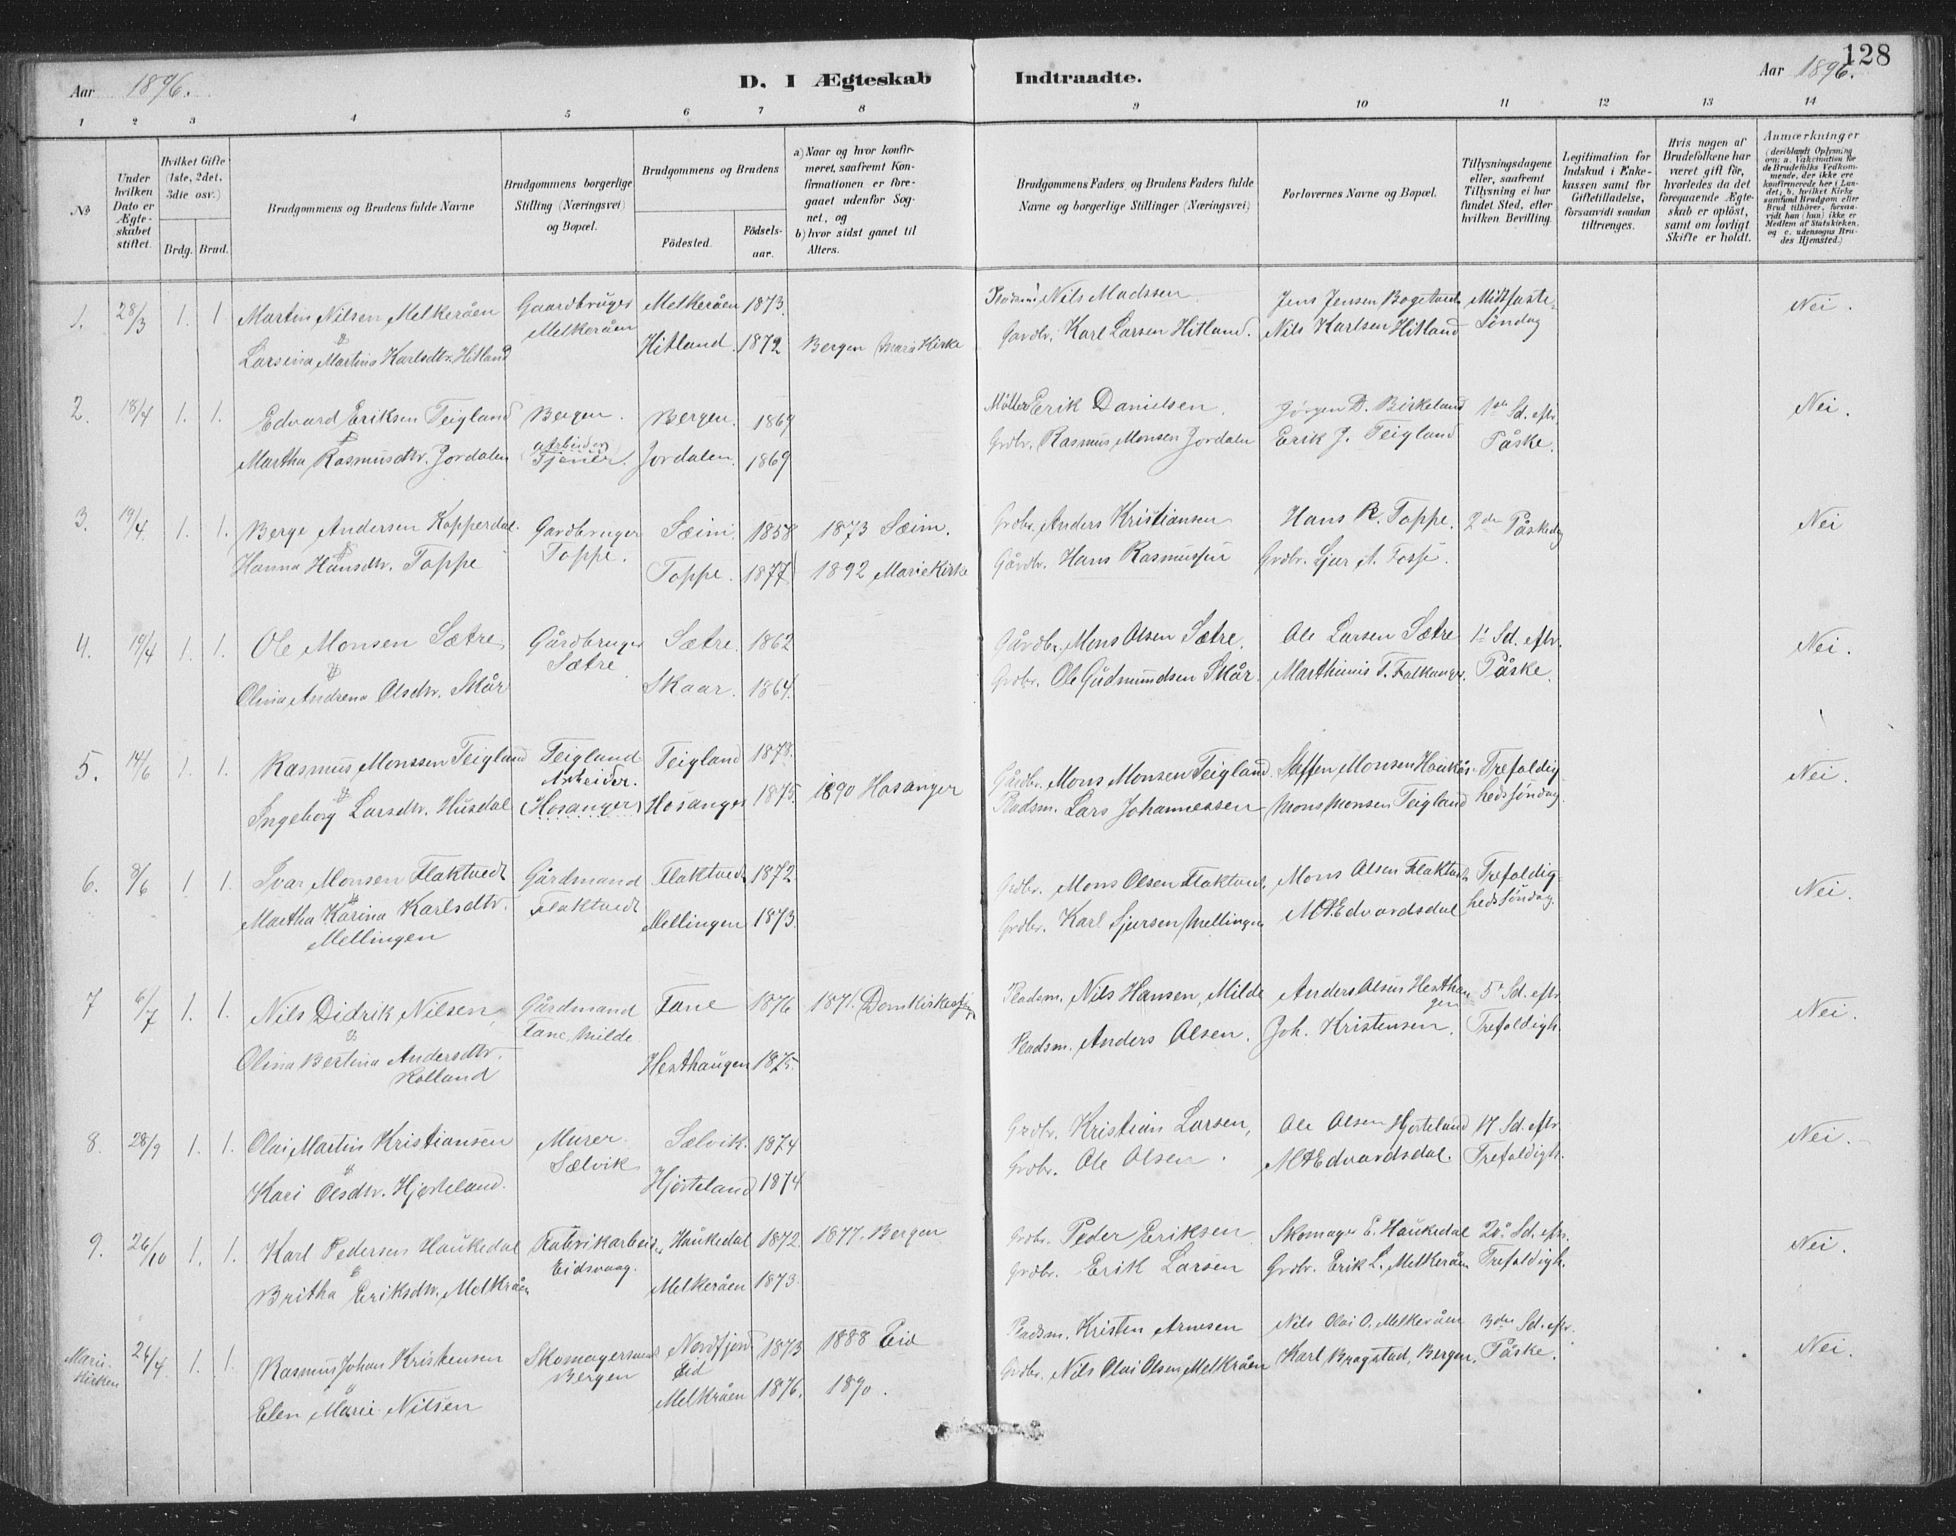 128
Aar 1896.
D. I Ægteskab Indtraadte.
Aar 1896.
1 2 3 4 5 6 7 8 9 10 11 12 13 14
No
Under hvilken Dato er Ægteskabet stiftet.
Hvilket Gifte (1ste, 2det, 3die osv.)
Brdg. Brud.
Brudgommens og Brudens fulde Navne
Brudgommens borgerlige Stilling (Næringsvei) og Bopæl.
Brudgommens og Brudens
Fødested. Fødselsaar.
a) Naar og hvor konfirmeret, saafremt Konfirmationen er foregaaet udenfor Sognet, og
b) hvor sidst gaaet til Alters.
Brudgommens Faders og Brudens Faders fulde Navne og borgerlige Stillinger (Næringsvei)
Forlovernes Navne og Bopæl.
Tillysningsdagene eller, saafremt Tillysning ei har fundet Sted, efter hvilken Bevilling.
Legitimation for Indskud i Enkekassen samt for Giftetilladelse, forsaavidt saadan tiltrænges.
Hvis nogen af Brudefolkene har været gift før, hvorledes da det foregaaende Ægteskab er opløst, samt om lovligt Skifte er holdt.
Anmærkninger (deriblandt Oplysning om: a. Vakcination for de Brudefolks Vedkommende, der ikke ere konfirmerede her i Landet, b. hvilket Kirkesamfund Brudgom eller Brud tilhører, forsaavidt han (hun) ikke er Medlem af Statskirken, og c. udensogns Brudes Hjemsted.)
1. 28/3 1. 1 Martin Nilsen Melkeråen Gaardbruger Melkeråen 1873. Nils Madssen Jens Jensen Midtfaste- Nei.
& Melkeråen
Larsina Martina Karlsdtr. Hitland Hitland 1872 Bergen Mariekirke Gardbr. Karl Larsen Hitland. Nils Karlsen Hitland Søndag
2. 18/4 1. 1. Edvard Eriksen Teigland Bergen. Bergen. 1869 Møller Erik Danielsen. Jørgen D. Birkeland 1ste Sd. eftr. Nei.
& Arbeider
Martha Rasmusdtr. Jordalen Tjener. Jordalen. 1869 Grdbr. Rasmus Monsen Jordalen Erik J. Teigland Påske.
3. 19/4. 1. 1. Berge Andersen Kopperdal. Gardbruger Sæim. 1858 1873 Sæim. Grdbr. Anders Kristiansen Hans R. Toppe. 2den Påskedg Nei
& Toppe.
Hanna Hansdtr. Toppe Toppe. 1877 1892 Mariekirke Gårdbr. Hans Rasmussen Grdbr. Sjur A.
4. 19/4 1. 1. Ole Monsen Sætre Gårdbruger Sætre. 1862 Gårdbr. Mons Olsen Sætre. Ole Larsen Sætre 1ste Sd. eftr. Nei.
& Sætre
Olina Andrena Olsdtr. Skår Skaar. 1864. Grdbr. Ole Gudmundsen Skår. Marthinis T. Falkanger. Påske.
5. 14/6 1. 1. Rasmus Monssen Teigland Teigland Teigland 1878. Gårdbr. Mons Monsen Teigland. Steffen Monsen Haukås Trefoldig- Nei.
& Arbeider.
Ingeborg Larsdtr. Husdal (Hosanger) Hosanger 1875. 1890 Hosanger Pladsm. Lars Johannessen Mons Monsen Teigland hedssøndag.
6. 8/6 1 1. Ivar Monsen Flaktvedt Gårdmand Flaktvedt 1872 Grdbr. Mons Olsen Flaktvedt. Mons Olsen Flaktvedt Trefoldig- Nei.
& Flaktvedt
Martha Karina Karlsdtr. Mellingen 1873. Grdbr. Karl Sjursen Mellingen M. Edvardsdal hedssøndag.
Mellingen
7 6/7 1. 1. Nils Didrik Nilsen Gårdmand Fane 1876 1891. Domkirken Pladsm. Nils Hansen, Milde Anders Olsen Hesthaugen 5te Sd. eftr. Nei.
& Fane, Milde
Olina Bertina Andersdtr. Hesthaugen 1875. Pladsm. Anders Olsen. Joh. Kristensen. Trefoldigh.
Rolland
8. 28/9 1. 1. Olai Martin Kristiansen Murer Sælvik. 1874 Grdbr. Kristian Larsen, Ole Olsen Hjorteland 17 Sd. eftr. Nei.
& Sælvik
Kari Olsdtr. Hjorteland. Hjorteland 1874 Grdbr. Ole Olsen. M. Edvardsdal. Trefoldigh.
9. 26/10 1. 1. Karl Pedersen Haukedal Fabrikarbeid. Haukedal 1872. 1877. Bergen Grdbr. Peder Eriksen Skomager E. Haukedal 20de Sd. eftr. Nei.
& Eidsvaag.
Britha Eriksdtr. Melkråen Melkeråen 1873. Grdbr. Erik Larsen Grdbr. Erik L. Melkeråen Trefoldigh.
Mariekirken 26/4 1. 1. Rasmus Johan Kristensen Skomagersvend Nordfjord 1873 1888 Eid Pladsm. Kristen Arnesen Nils Olai O. Melkeråen 3die Sd. eftr. Nei.
& Bergen Eid
Elen Marie Nilsen Melkråen 1876. 1890. Grdbr. Nils Olai Olsen Melkråen Karl Bragstad, Bergen. Påske.